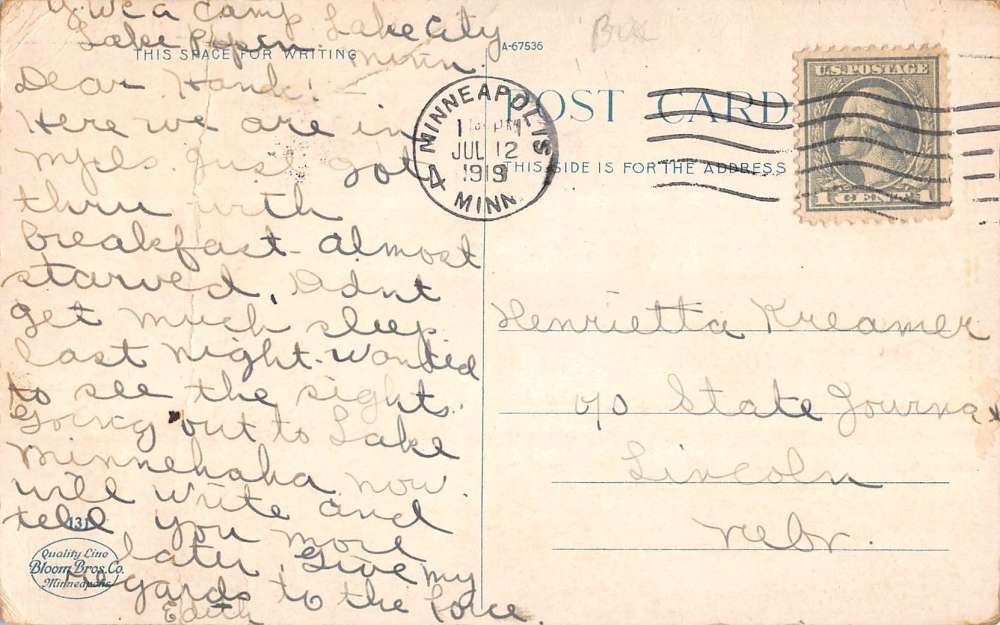 Y.W.C.A Camp Lake City
Lake Pepin. Minn.
THIS SPACE FOR WRITING
A-67536
Dear Hank! -
Here we are in
Mpls. just got
thru with
breakfast - almost
starved. Didnt
get much sleep
last night. Wanted
to see the sights.
Going out to Lake
Minnehaha now.
will write and
tell you more
later. Give my
regards to the force.
Edith
131
Quality Line
Bloom Bros. Co.
Minneapolis
POST CARD
THIS SIDE IS FOR THE ADDRESS
MINNEAPOLIS
PM
JUL 12
1919
4
MINN.
U.S. POSTAGE
1 CENT 1
Henrietta Kreamer
c/o State Journal
Lincoln
Nebr.